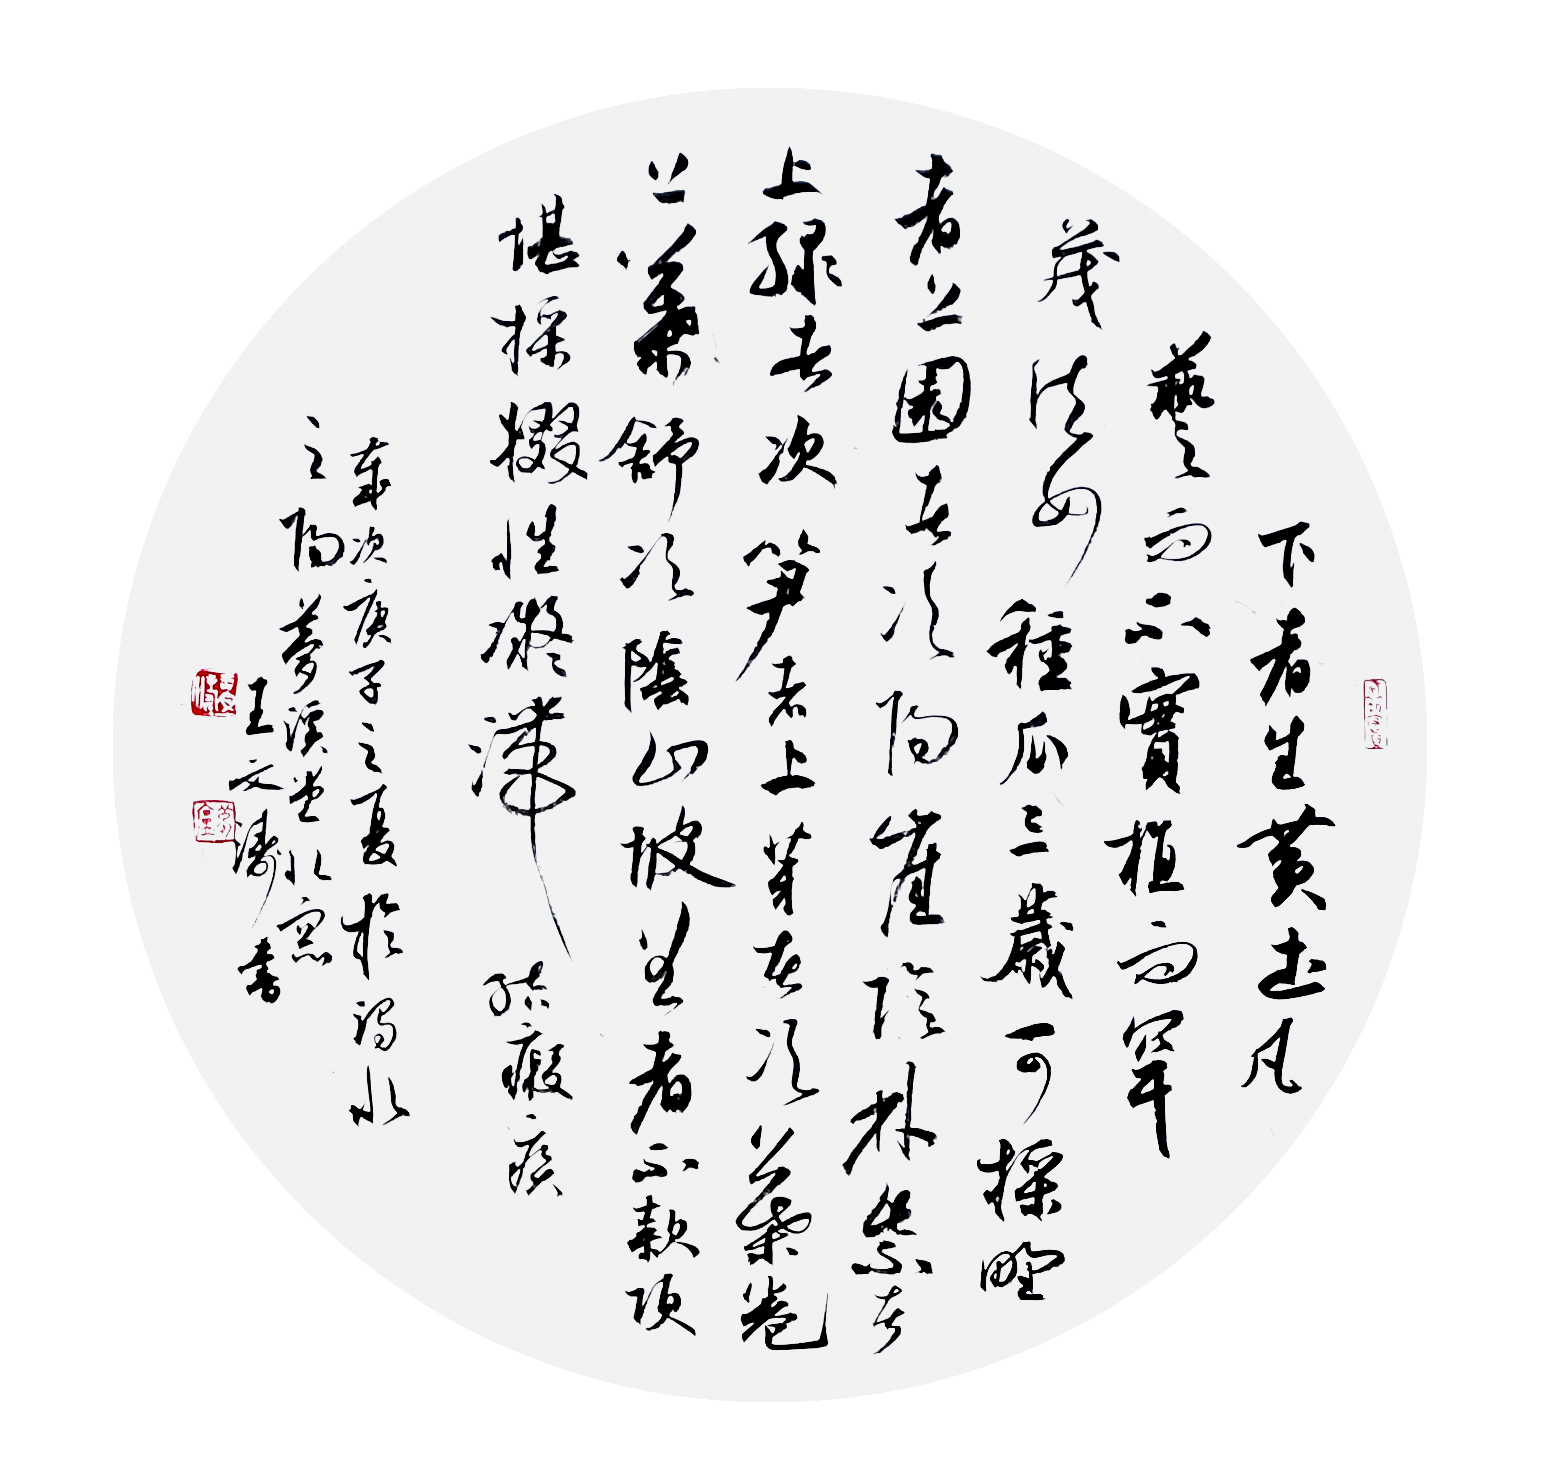 下者生黄土凡
藝而不實植而罕
茂法如種瓜三歲可採野
者上園者次陽崖陰林紫者
上綠者次笋者上芽者次葉卷
上葉舒次陰山坡谷者不堪
堪採掇性凝滯結瘕疾
歲次庚子之夏於濁水
之陽夢溪堂北窓
王文濤書